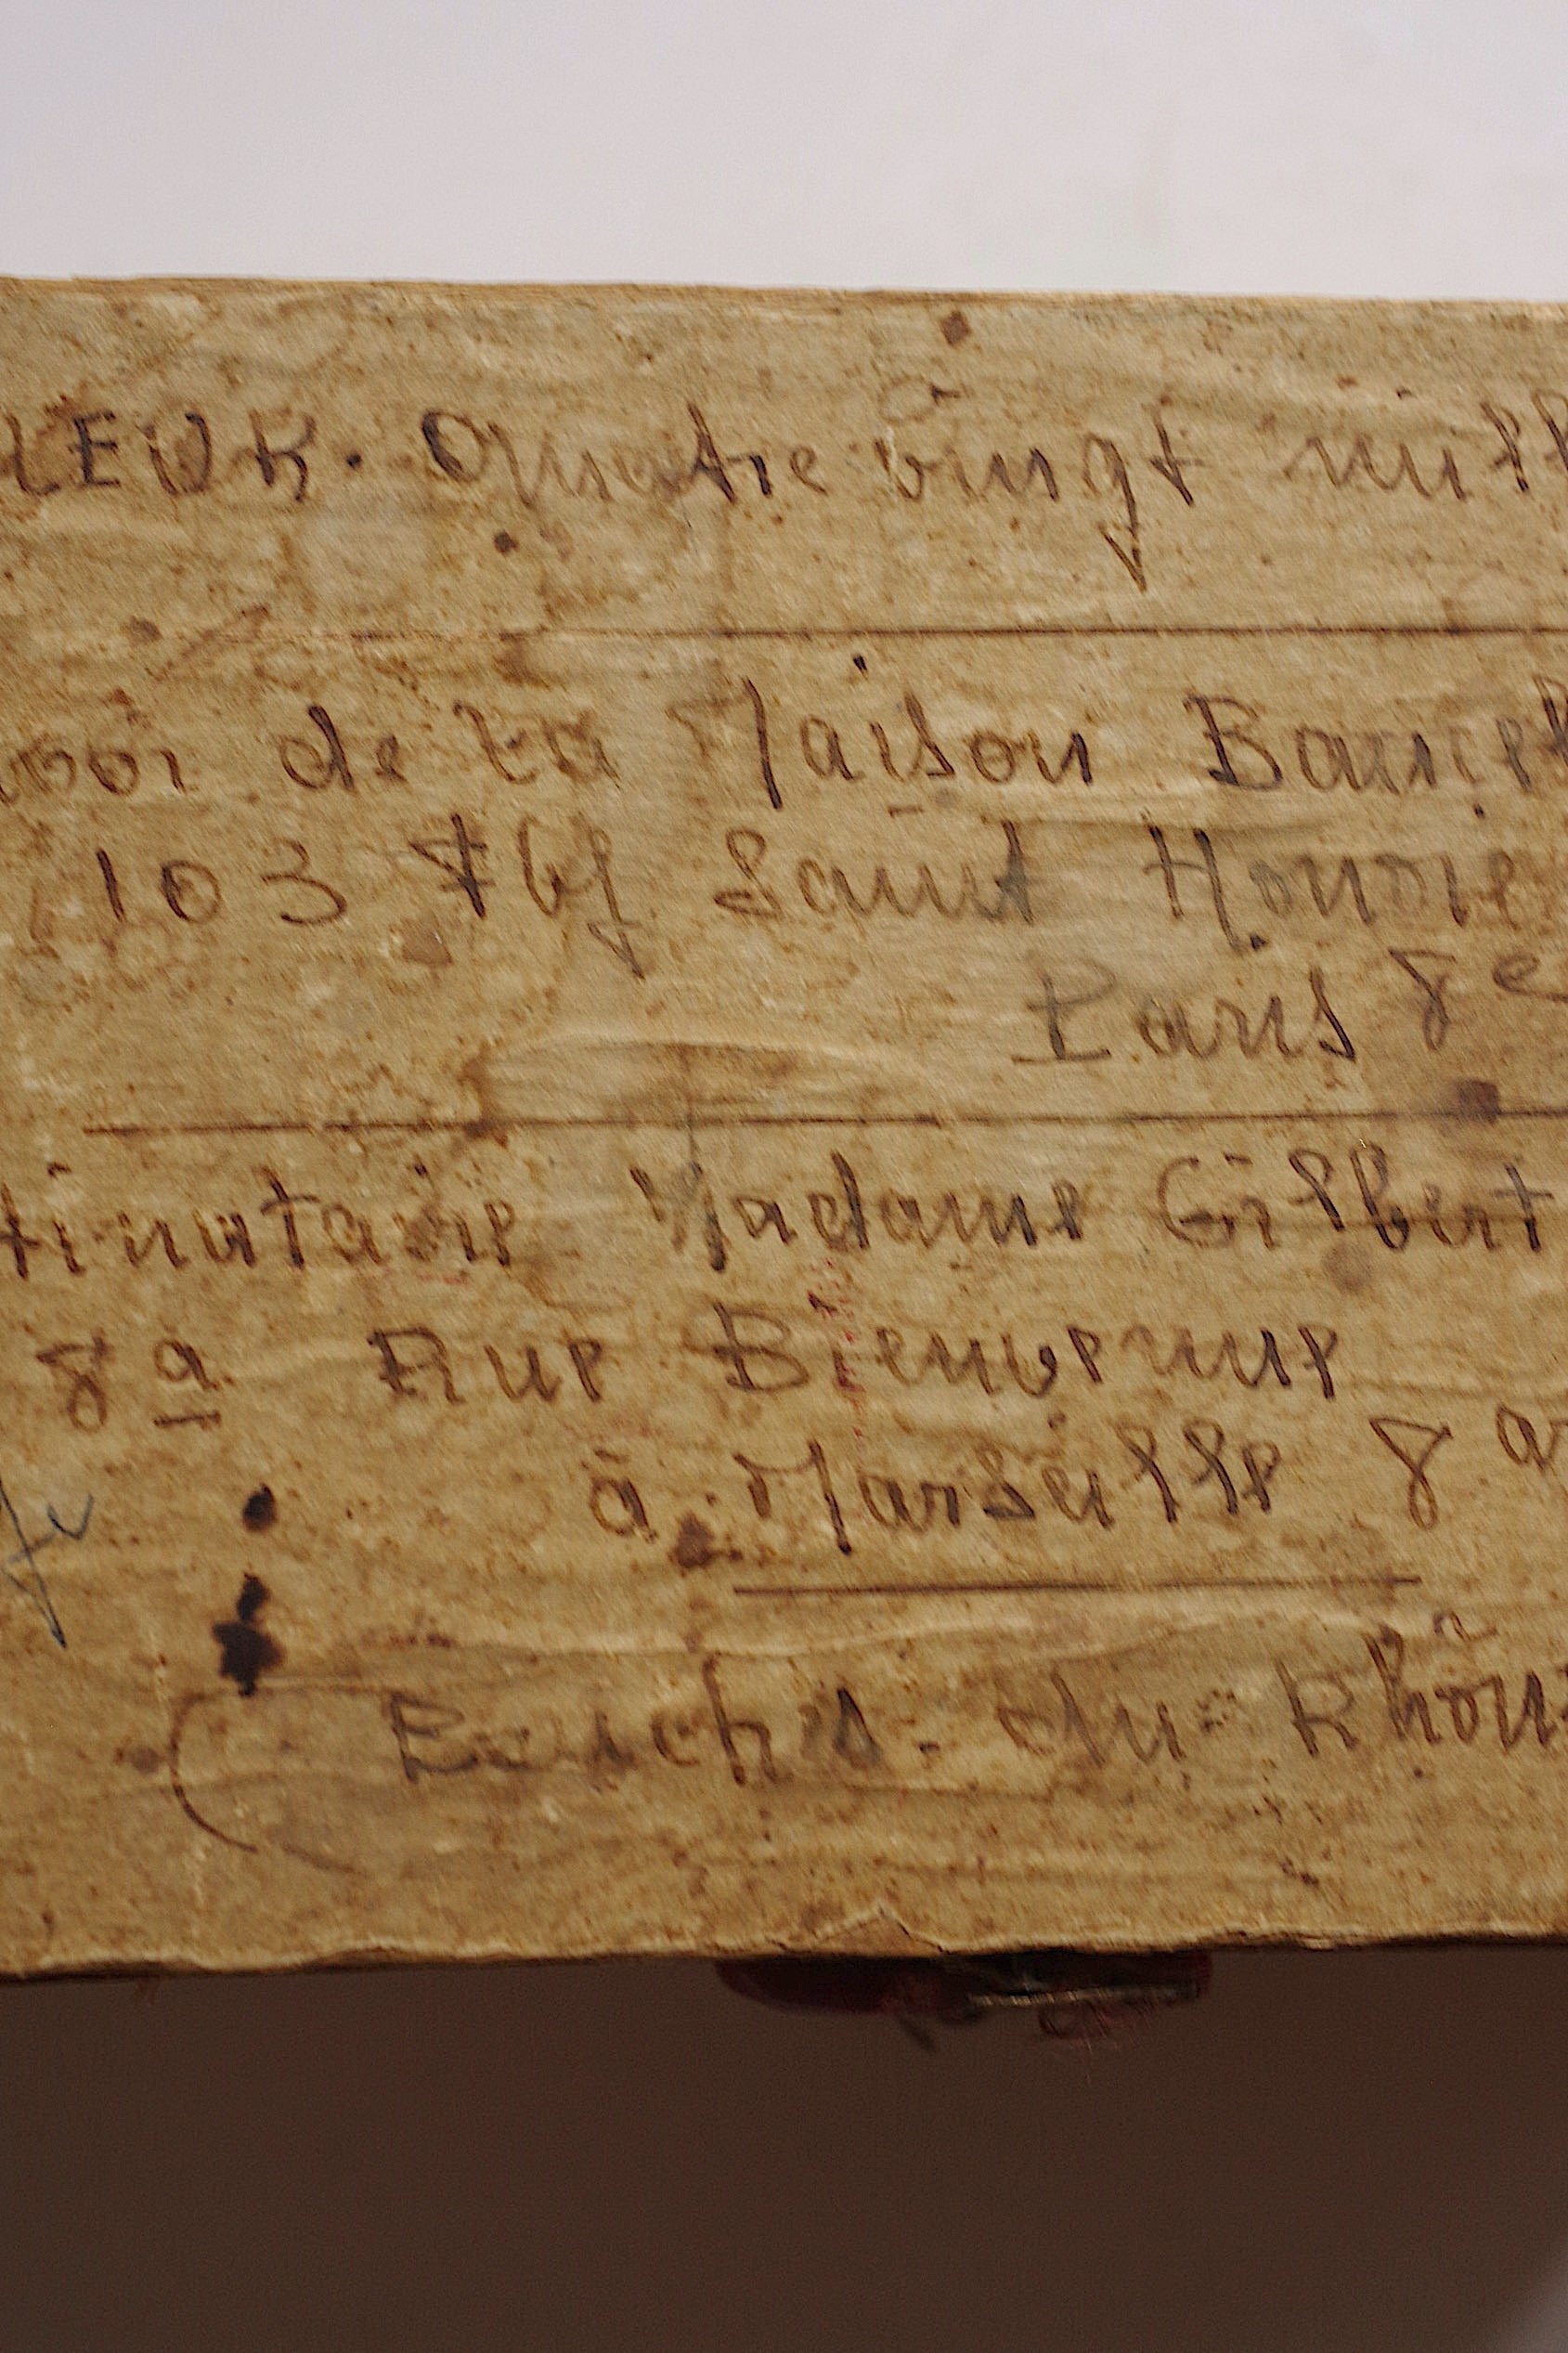 LEUR. Quatre vingt mill
voi de la Maison Bancel
103 Fbg Saint Honoré
Paris 8e
tinataire Madame Gilbert
8a Rue Bienvenue
à Marseille 8ar
(Bouches-du-Rhôn